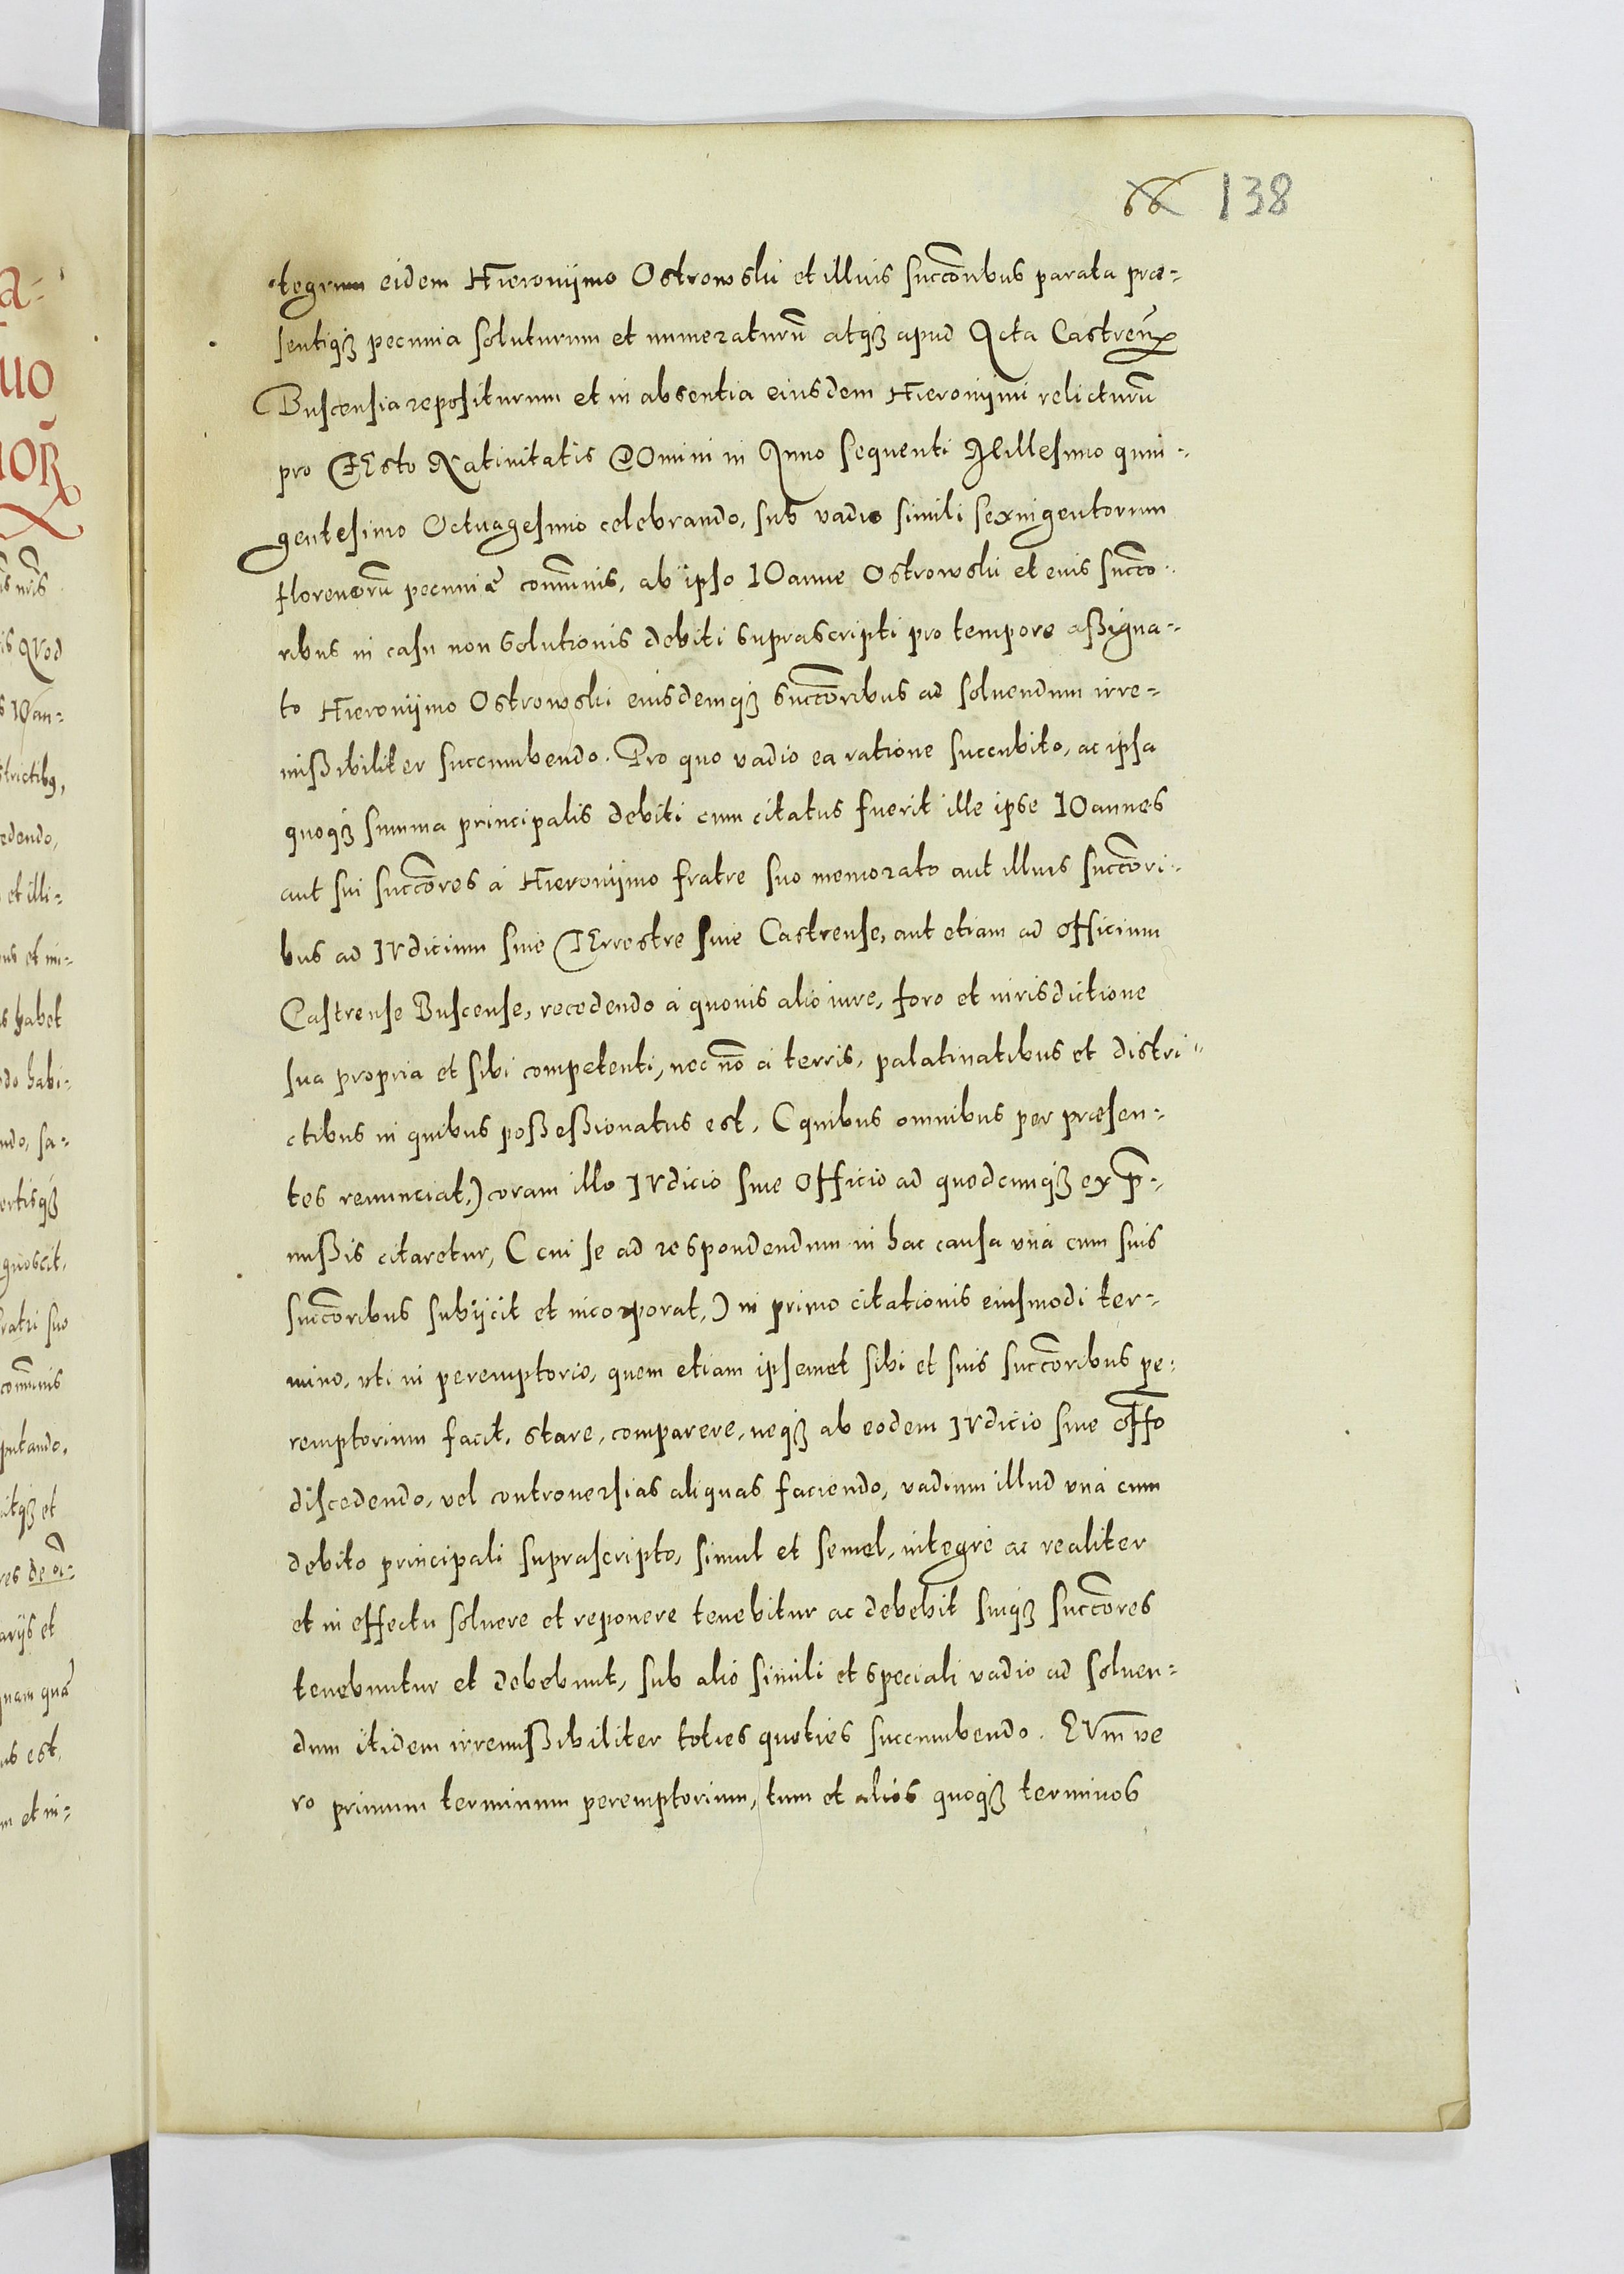 66 138
tegrum eidem Hieronijmo Ostrowski et illius succõribus parata præ-
sentiqȝ pecunia soluturum et numeraturũ atqȝ apud Acta Castreñ
Buscensia repositurum et in absentia eiusdem Hieronijmi relicturũ
pro FEsto Natiuitatis DOmini in Anno sequenti Millesimo quin-
gentesimo Octuagesimo celebrando, sub vadio simili sexingentorum
florenorũ pecuniæ com̃unis, ab ipso IOanne Ostrowski et eius succõ-
ribus in casu non solutionis debiti suprascripti pro tempore aßigna-
to Hieronijmo Ostrowski eiusdemqȝ succõribus ad soluendum irre-
mißibiliter succumbendo. Pro quo vadio ea ratione succubito, ac ipsa
quoqȝ summa principalis debiti cum citatus fuerit ille ipse IOannes
aut sui succõres à Hieronijmo fratre suo memorato aut illius succõri-
bus ad IVdicium siue TErrestre siue Castrense, aut etiam ad officium
Castrense Buscense, recedendo à quouis alio iure, foro et iurisdictione
sua propria et sibi competenti, nec nõ à terris, palatinatibus et distri-
ctibus in quibus poßeßionatus est, (quibus omnibus per præsen-
tes renunciat,) coram illo IVdicio siue Officio ad quodcunqȝ ex p̃-
mißis citaretur, (cui se ad respondendum in hac causa vnà cum suis
succõribus subijcit et incorporat,) in primo citationis eiusmodi ter-
mino, vti in peremptorio, quem etiam ipsemet sibi et suis succõribus pe-
remptorium facit, stare, comparere, neqȝ ab eodem IVdicio siue offõ
discedendo, vel controuersias aliquas faciendo, vadium illud vnà cum
debito principali suprascripto, simul et semel, integrè ac realiter
et in effectu soluere et reponere tenebitur ac debebit suiqȝ succõres
tenebuntur et debebunt, sub alio simili et speciali vadio ad soluen-
dum itidem irremißibiliter toties quoties succumbendo. EVm̃ ve
ro primum terminum peremptorium, tum et alios quoqȝ terminos